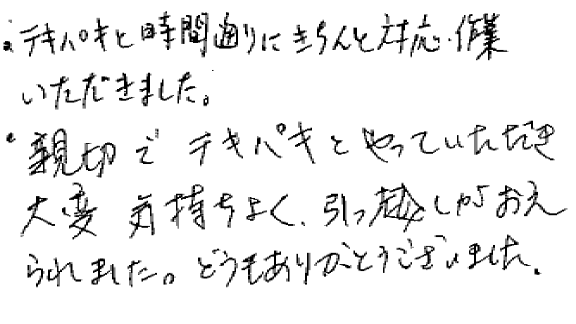 ・テキパキと時間通りにきちんと対応・作業
いただきました。
・親切で テキパキとやっていただき
大変 気持ちよく、引っ越しがおえ
られました。どうもありがとうございました。